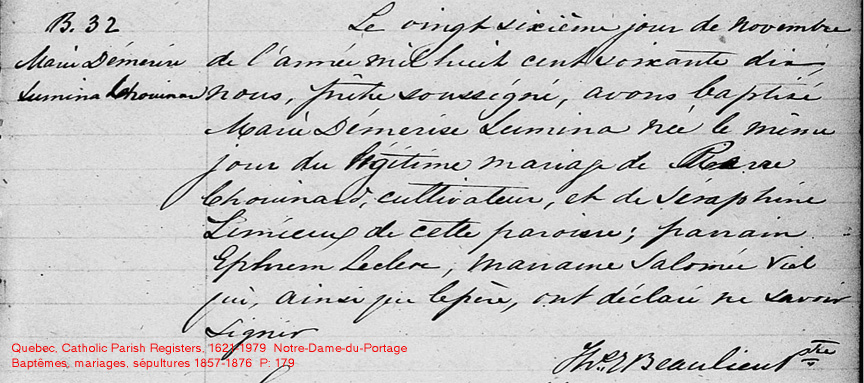 B. 32
Marie Démerise
Lumina Chouinard
Le vingt sixième jour de novembre
de l'année mil huit cent soixante dix,
nous, prêtre soussigné, avons baptisé
Marie Démerise Lumina née le même
jour du légitime mariage de Pierre
Chouinard, cultivateur, et de Séraphine
Lemieux de cette paroisse; parrain
Ephrem Leclerc, marraine Salomée Viel
qui, ainsi que le père, ont déclaré ne savoir
signer
Ths. E Beaulieu ptre
Quebec, Catholic Parish Registers, 1621-1979 Notre-Dame-du-Portage
Baptêmes, mariages, sépultures 1857-1876 P: 179